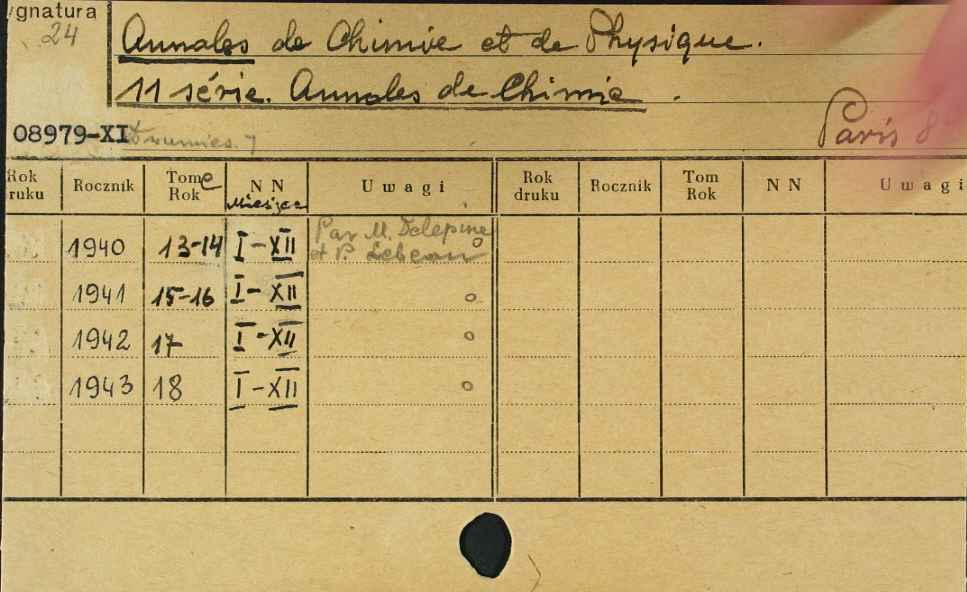 ygnatura
24
Annales de Chimie et de Physique.
11 série. Annales de Chimie.
08979-XI
Paris 8°
Rok ruku Rocznik Tome Rok N N Miesiące Uwagi Rok druku Rocznik Tom Rok N N Uwagi
1940 13-14 I-XII Par M. Delepine
et P. Lebeau
1941 15-16 I-XII
1942 17 I-XII
1943 18 I-XII